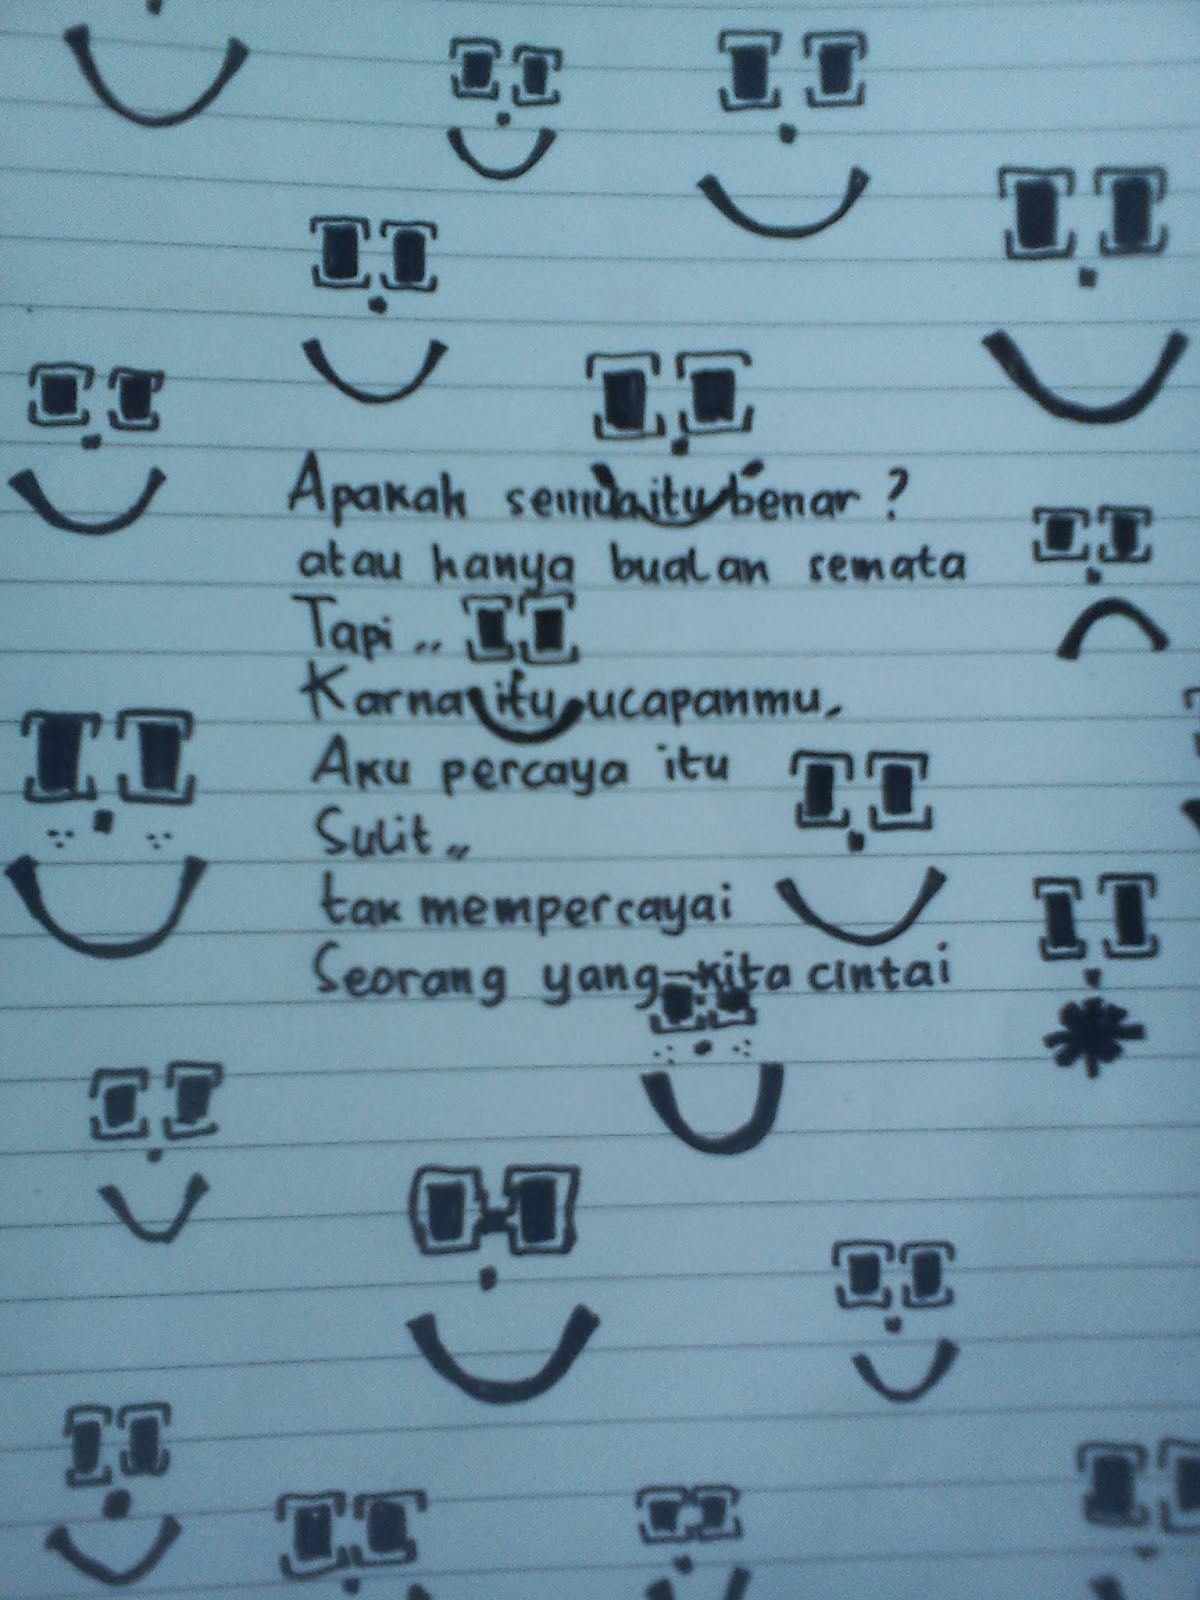 Apakah semua itu benar ?
atau hanya bualan semata
Tapi ..
Karna itu ucapanmu.
Aku percaya itu
Sulit ..
tak mempercayai
Seorang yang kita cintai